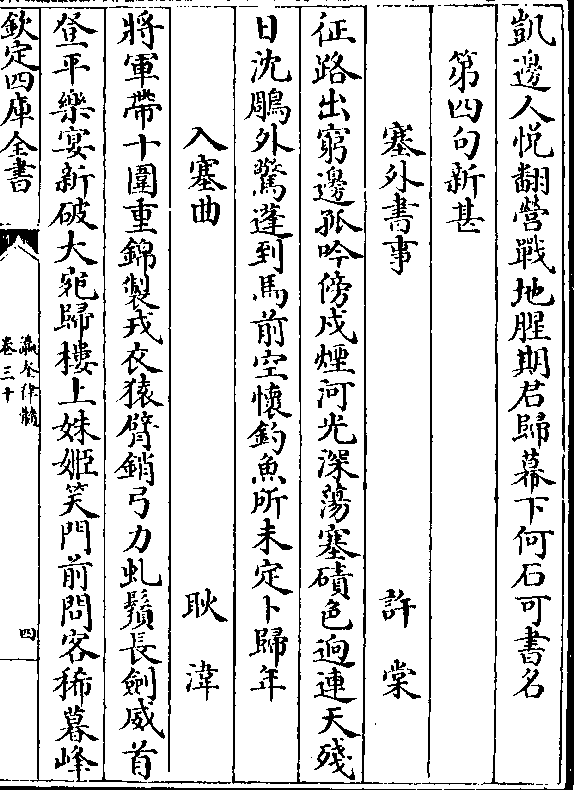 凱邊人悅翻營戰地腥期君歸幕下何石可書名
第四句新甚
塞外書事 許棠
征路出窮邊孤吟傍戍煙河光深蕩塞磧色逈連天殘
日沈鵰外驚蓬到馬前空懷釣魚所未定卜歸年
入塞曲 耿湋
將軍帶十圍重錦製戎衣猿臂銷弓力虬鬚長劍威首
登平樂宴新破大宛歸樓上姝姬笑門前問客稀暮峰
欽定四庫全書
瀛奎律髓
卷三十
四